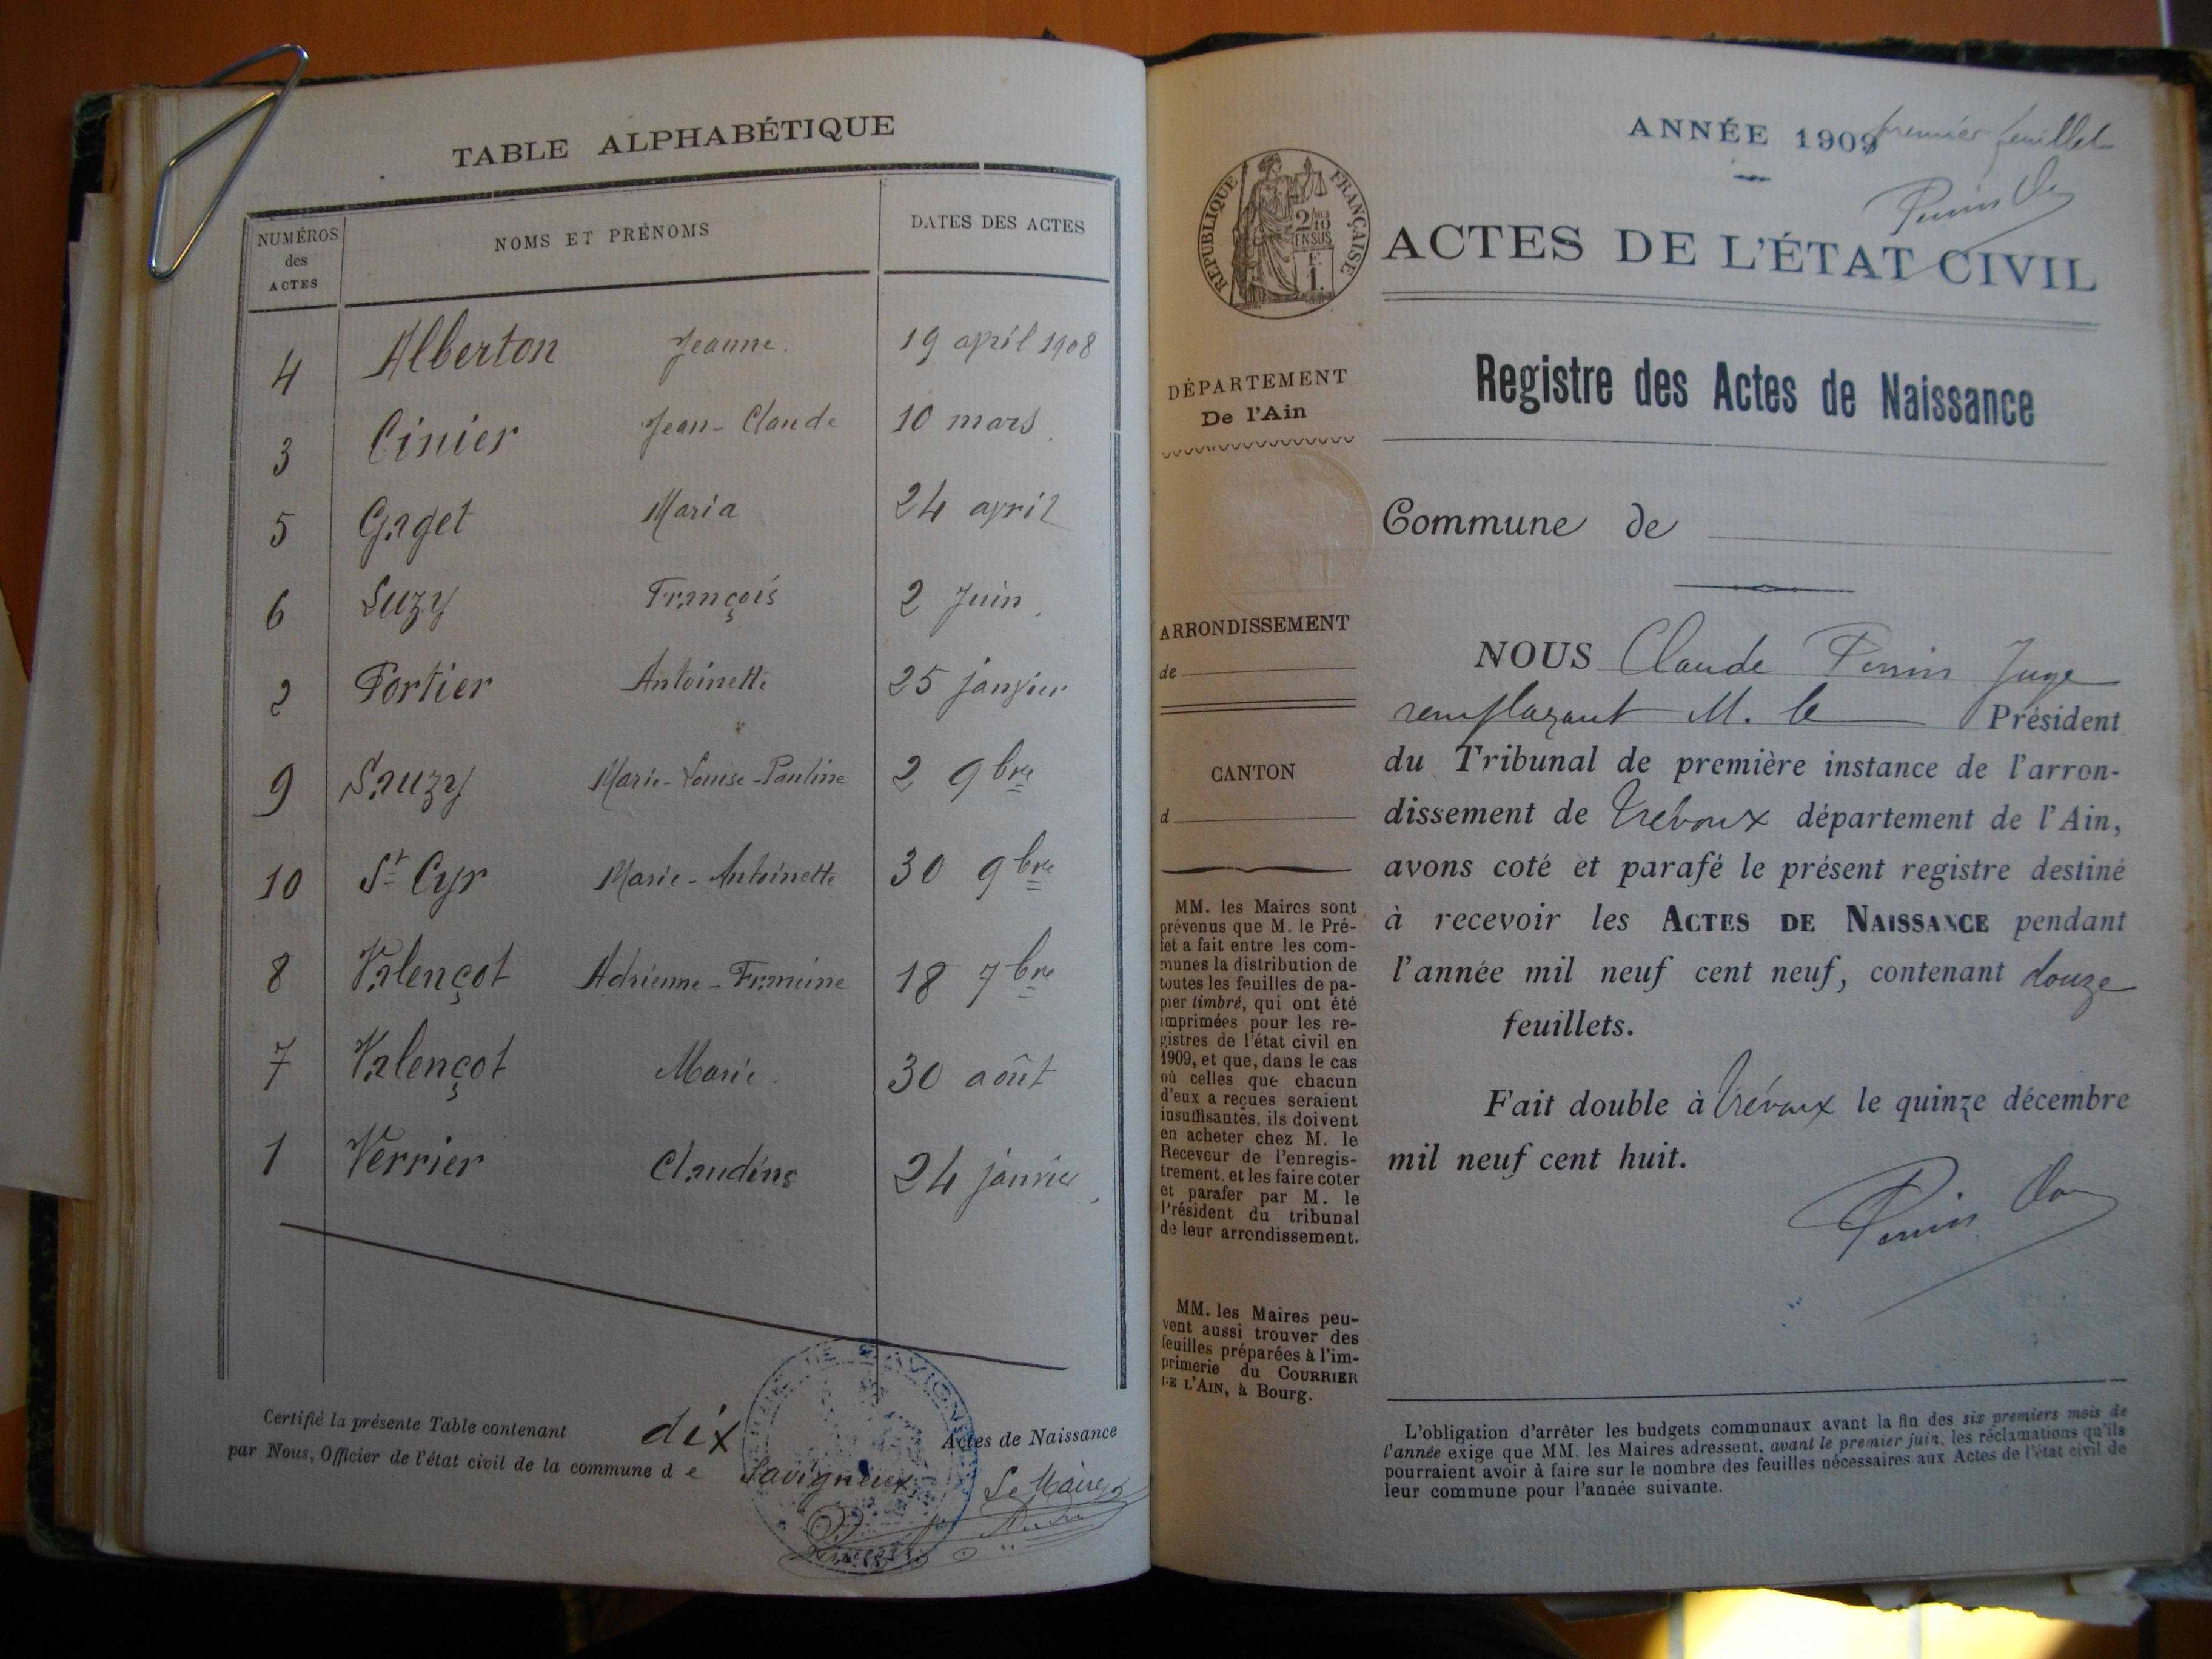 TABLE ALPHABÉTIQUE
NUMÉROS
des
ACTES
NOMS ET PRÉNOMS
DATES DES ACTES
4 Alberton Jeanne. 19 april 1908
3 Cinier Jean-Claude 10 mars
5 Gaget Maria 24 april
6 Luzy François 2 Juin
2 Portier Antoinette 25 janvier
9 Sauzy Marie-Louise-Pauline 2 9bre
10 St Cyr Marie-Antoinette 30 9bre
8 Valençot Adrienne-Francine 18 7bre
7 Valençot Marie. 30 août
1 Verrier Claudine 24 janvier
Certifié la présente Table contenant dix Actes de Naissance
par Nous, Officier de l'état civil de la commune de Savigneux
Le Maire
ANNÉE 1909
premier feuillet
Perrin
RÉPUBLIQUE FRANÇAISE
2/10
EN SUS
F.
1.
ACTES DE L'ÉTAT CIVIL
Registre des Actes de Naissance
DÉPARTEMENT
De l'Ain
ARRONDISSEMENT
de
CANTON
d
MM. les Maires sont
prévenus que M. le Pré-
fet a fait entre les com-
munes la distribution de
toutes les feuilles de pa-
pier timbré, qui ont été
imprimées pour les re-
gistres de l'état civil en
1909, et que, dans le cas
où celles que chacun
d'eux a reçues seraient
insuffisantes, ils doivent
en acheter chez M. le
Receveur de l'enregis-
trement, et les faire coter
et parafer par M. le
Président du tribunal
de leur arrondissement.
MM. les Maires peu-
vent aussi trouver des
feuilles préparées à l'im-
primerie du COURRIER
DE L'AIN, à Bourg.
Commune de
NOUS Claude Perrin Juge
remplaçant M. le Président
du Tribunal de première instance de l'arron-
dissement de Trévoux département de l'Ain,
avons coté et parafé le présent registre destiné
à recevoir les ACTES DE NAISSANCE pendant
l'année mil neuf cent neuf, contenant douze
feuillets.
Fait double à Trévoux le quinze décembre
mil neuf cent huit.
Perrin
L'obligation d'arrêter les budgets communaux avant la fin des six premiers mois de
l'année exige que MM. les Maires adressent, avant le premier juin, les réclamations qu'ils
pourraient avoir à faire sur le nombre des feuilles nécessaires aux Actes de l'état civil de
leur commune pour l'année suivante.